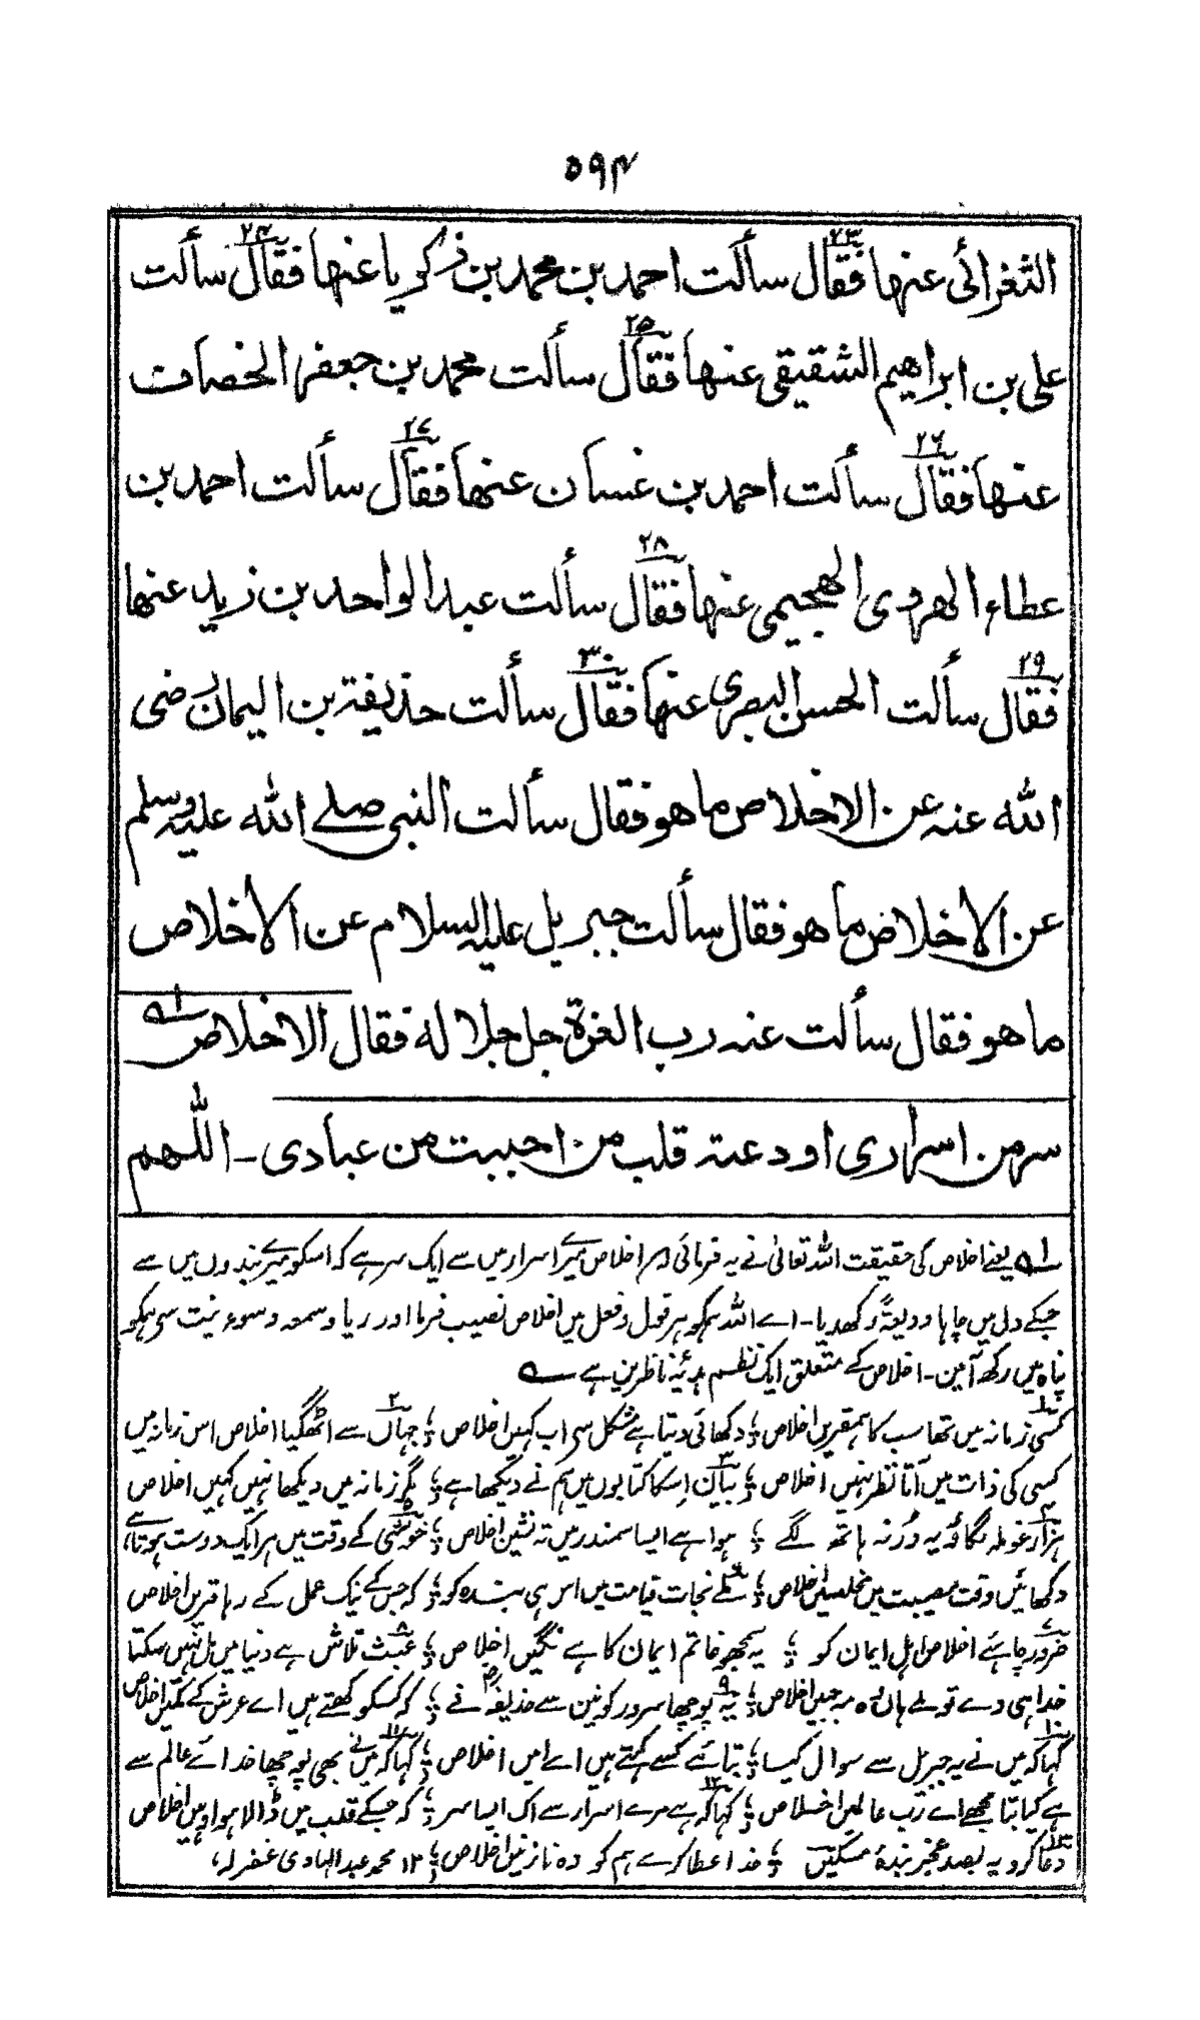 ۵۹۴
الثغرائی عنها فقال ۲۳ سألت احمد بن محمد بن زکریا عنها فقال ۲۴ سألت
علی بن ابراهیم الشقیقی عنها فقال ۲۵ سألت محمد بن جعفر الخصاف
عنها فقال ۲۶ سألت احمد بن غسان عنها فقال ۲۷ سألت احمد بن
عطاء الهروی الهجیمی عنها فقال ۲۸ سألت عبد الواحد بن زید عنها
فقال ۲۹ سألت الحسن البصری عنها فقال ۳۰ سألت حذیفة بن الیمان رضی
الله عنه عن الاخلاص ما هو فقال سألت النبی صلے الله علیه وسلم
عن الاخلاص ما هو فقال سألت جبریل علیه السلام عن الاخلاص
ما هو فقال سألت عنه رب العزة جل جلاله فقال الاخلاص ۱؎
سر من اسراری اودعته قلب من احببت من عبادی ۔ اللّٰهم
۱؎ یعنے اخلاص کی حقیقت اللہ تعالیٰ نے یہ فرمائی اخلاص میرے اسرار میں سے ایک سر ہے کہ اسکو میرے بندوں میں سے
جسکے دل میں چاہا ودیعۃً رکھدیا۔ اے اللہ ہمکو ہر قول و فعل میں اخلاص نصیب فرما اور ریا و سمعہ و سوء نیت سی ہمکو
پناہ میں رکھ آمین۔ اخلاص کے متعلق ایک نظم ہدیۂ ناظرین ہے ؎
۱ کسی زمانہ میں تھا سب کا ہمقریں اخلاص ؛ دکھائی دیتا ہے مشکل سی اب کہیں اخلاص ؛ ۲ جہاں سے اٹھ گیا اخلاص اس زمانہ میں
کسی کی ذات میں آتا نظر نہیں اخلاص ؛ ۳ بیان اسکا کتابوں میں ہم نے دیکھا ہے ؛ مگر زمانہ میں دیکھا نہیں کہیں اخلاص
۴ ہزار غوطہ لگاؤ یہ دُر نہ ہاتھ لگے ؛ ہوا ہے ایسا سمندر میں تہ نشین اخلاص ؛ ۵ خوشی کے وقت میں ہر ایک دوست ہوتا ہے
دکھائیں وقت مصیبت میں مخلصیں اخلاص ؛ ۶ ملے نجات قیامت میں اس ہی بندہ کو ؛ کہ جس کے نیک عمل کے رہا قریں اخلاص
۷ ضرور چاہئے اخلاص اہل ایمان کو ؛ یہ سمجھو خاتم ایمان کا ہے نگیں اخلاص ؛ ۸ عبث تلاش ہے دنیا میں مل نہیں سکتا
خدا ہی دے تو ملے ہاں وہ مہ جبیں اخلاص ؛ ۹ یہ پوچھا سرور کونین سے حذیفہ نے ؛ کہ کسکو کہتے ہیں اے عرش کے مکیں اخلاص
۱۰ کہا کہ میں نے یہ جبریل سے سوال کیا ؛ بتائے کسے کہتے ہیں اے امیں اخلاص ؛ ۱۱ کہا کہ میں نے بھی پوچھا خدائے عالم سے
ہے کیا بتا مجھے اے رب عالمیں اخلاص ؛ ۱۲ کہا کہ ہے مرے اسرار سے اک ایسا سر ؛ کہ جسکے قلب میں ڈالا ہوا وہیں اخلاص
۱۳ دعا کرو یہ بصد عجز بندۂ مسکیں ؛ خدا عطا کرے ہم کو وہ نازنیں اخلاص ؛ ۱۲ محمد عبد الہادی غفر لہ،